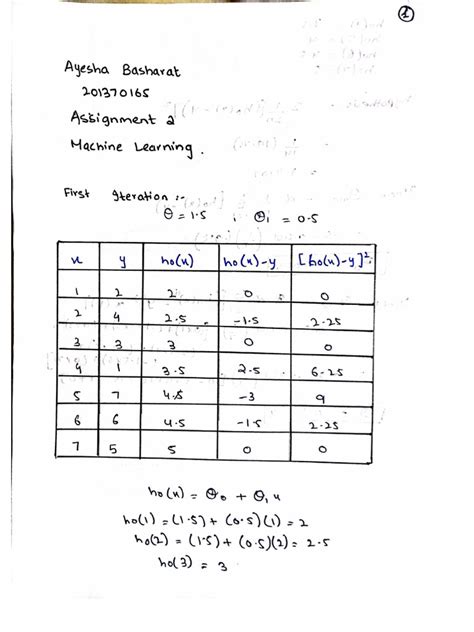 1
Ayesha Basharat
201370165
Assignment 2
Machine Learning.
First Iteration :-
θ = 1.5 , θ1 = 0.5
x y hθ(x) hθ(x)-y [hθ(x)-y]²
1 2 2 0 0
2 4 2.5 -1.5 2.25
3 3 3 0 0
4 1 3.5 2.5 6.25
5 7 4.5 -3 9
6 6 4.5 -1.5 2.25
7 5 5 0 0
hθ(x) = θ0 + θ1x
hθ(1) = (1.5) + (0.5)(1) = 2
hθ(2) = (1.5) + (0.5)(2) = 2.5
hθ(3) = 3